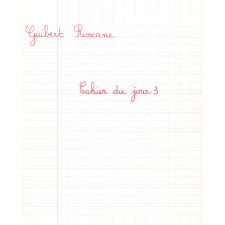 Guibert Roxane
Cahier du jour 3